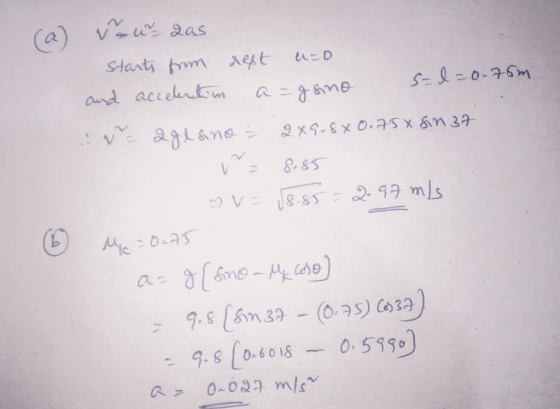 (a) v² - u² = 2as
starts from rest u=0
and acceleration a = g sinθ s = l = 0.75m
∴ v² = 2gl sinθ = 2×9.8×0.75× sin 37
v² = 8.85
⇒ v = √8.85 = 2.97 m/s
(b) μk = 0.75
a = g [sinθ - μk cosθ]
= 9.8 [sin 37 - (0.75) cos 37]
= 9.8 [0.6018 - 0.5990]
a = 0.027 m/s²